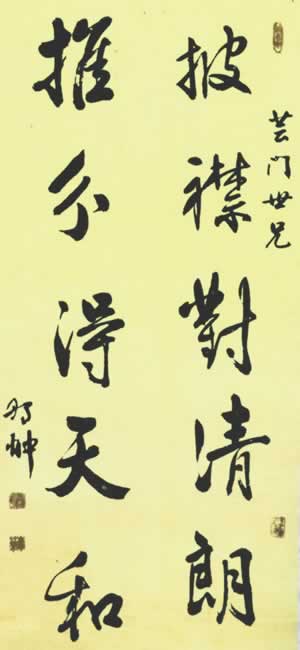 芸門世兄
披襟對清朗
推分得天和